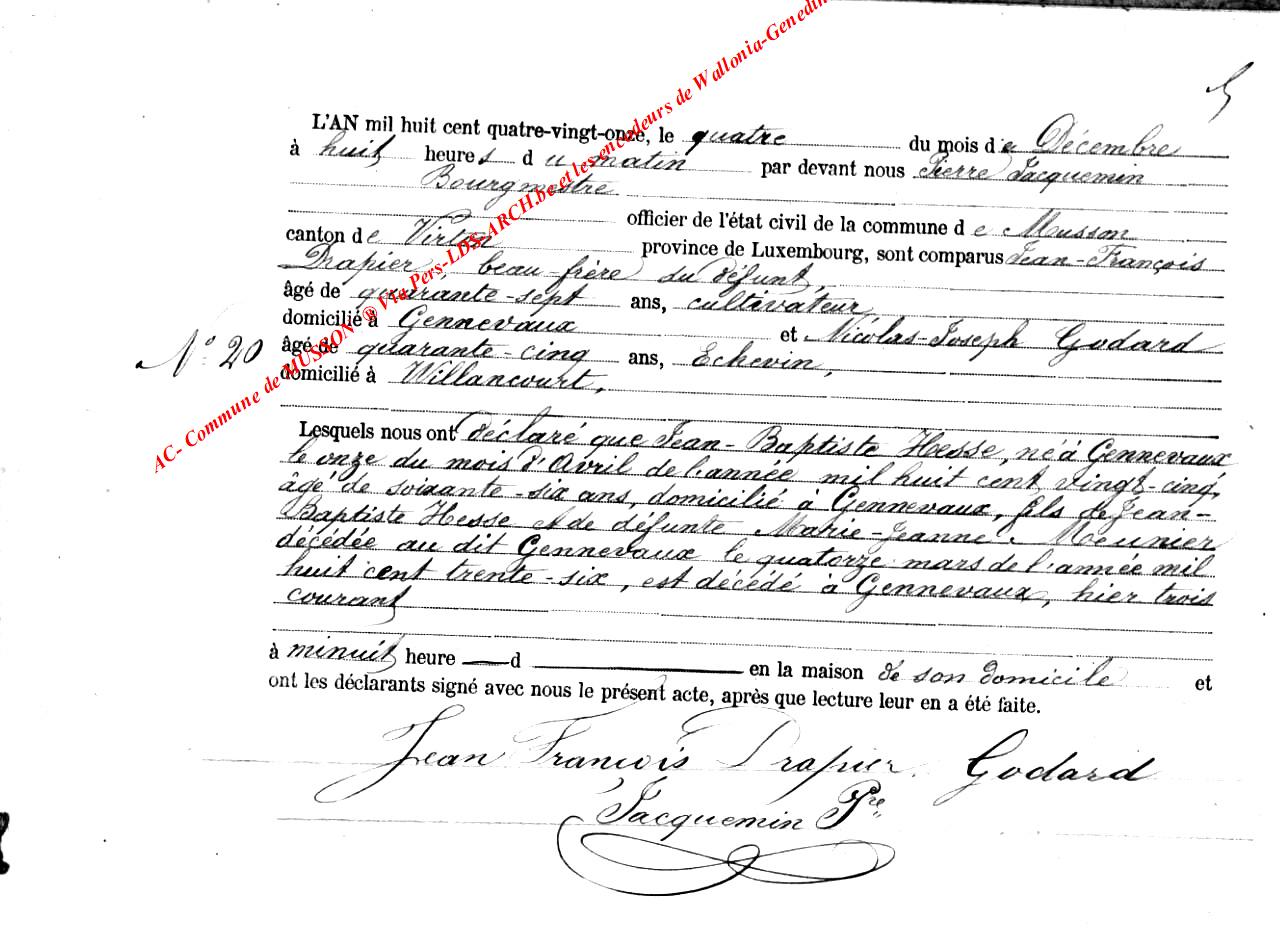 5
L'AN mil huit cent quatre-vingt-onze, le quatre du mois de Décembre
à huit heures du matin par devant nous Pierre Jacquemin
Bourgmestre
officier de l'état civil de la commune de Musson
canton de Virton province de Luxembourg, sont comparus Jean-François
Drapier, beau-frère du défunt,
âgé de quarante-sept ans, cultivateur,
domicilié à Gennevaux et Nicolas-Joseph Godard
N° 20 âgé de quarante-cinq ans, Echevin,
domicilié à Willancourt,
Lesquels nous ont déclaré que Jean-Baptiste Hesse, né à Gennevaux
le onze du mois d'Avril de l'année mil huit cent vingt-cinq,
âgé de soixante-six ans, domicilié à Gennevaux, fils de Jean-
Baptiste Hesse et de défunte Marie-Jeanne Meunier
décédée au dit Gennevaux le quatorze mars de l'année mil
huit cent trente-six, est décédé à Gennevaux, hier trois
courant
à minuit heure d en la maison de son domicile et
ont les déclarants signé avec nous le présent acte, après que lecture leur en a été faite.
Jean François Drapier Godard
Jacquemin Pre
AC- Commune de MUSSON ® Via Pers-LDS-ARCH.be et les encodeurs de Wallonia-Genedin